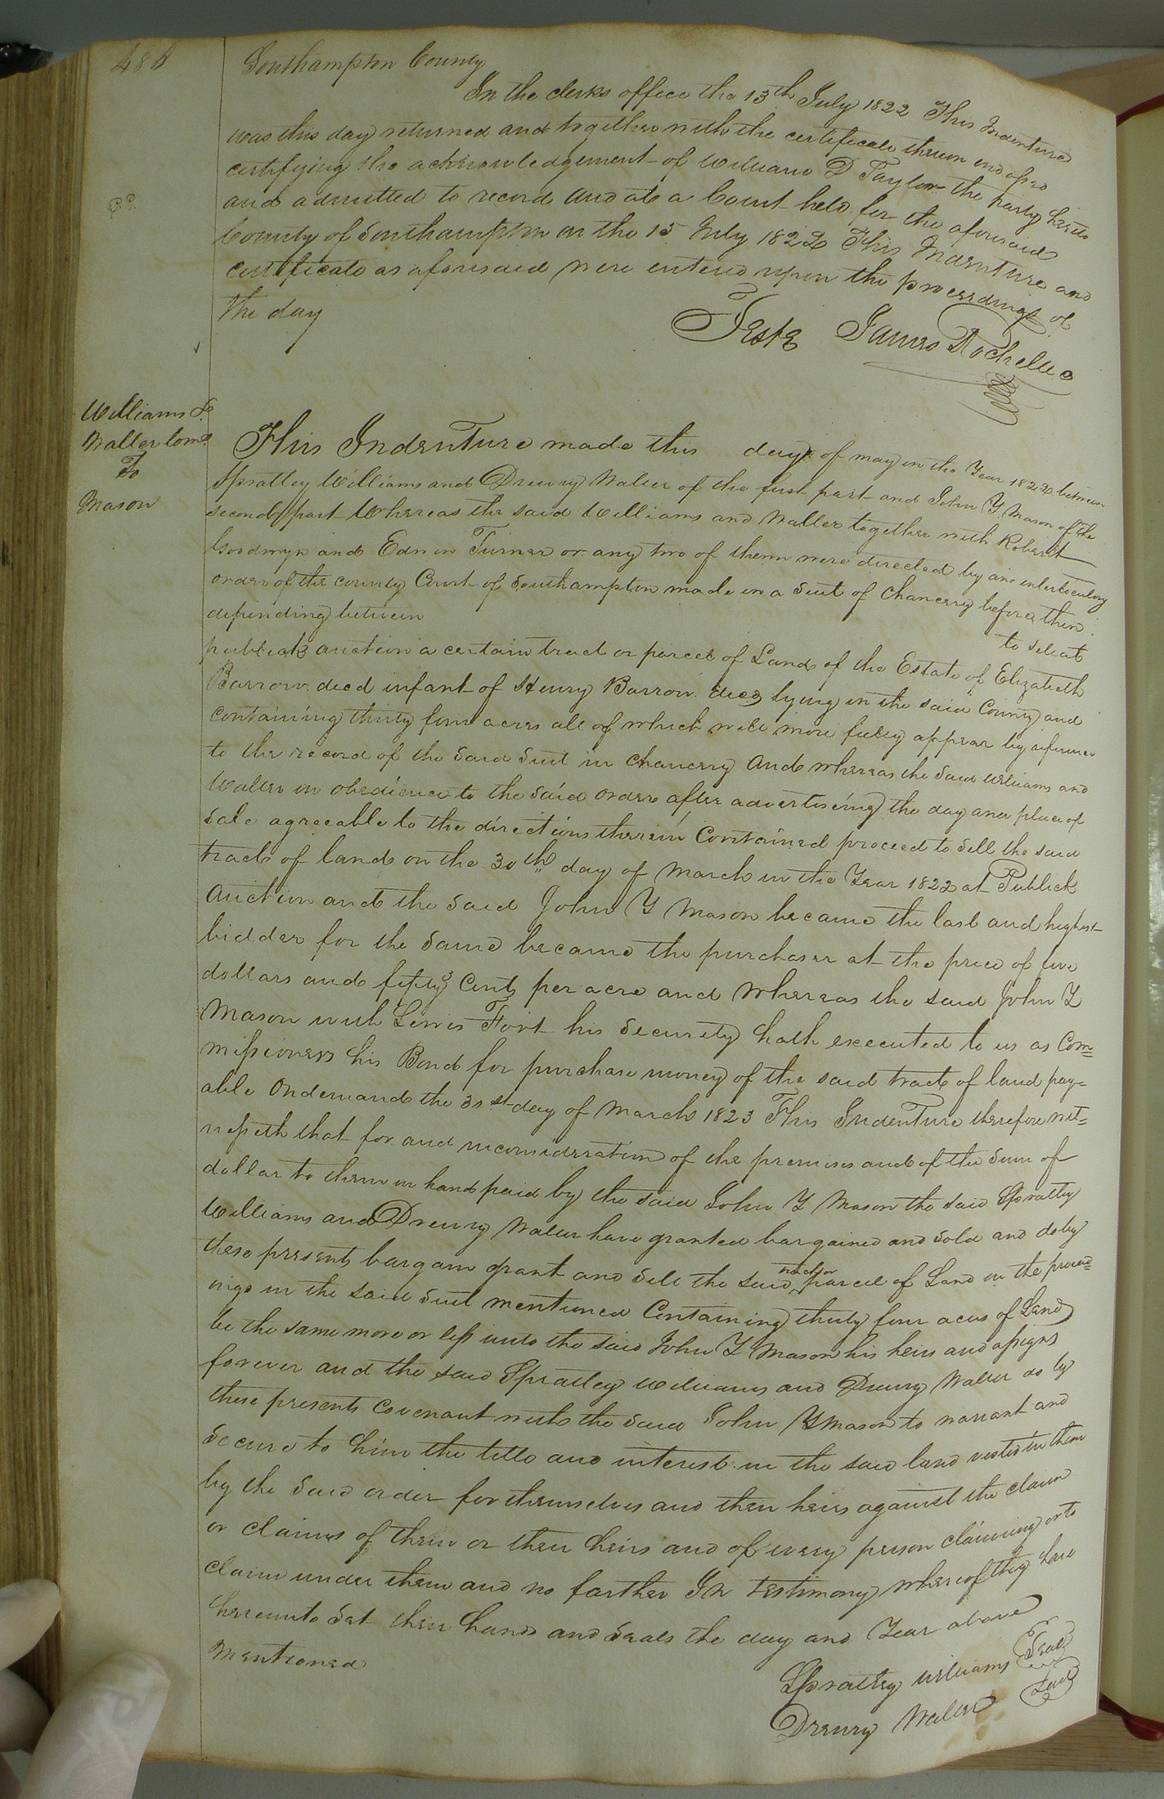 486
Southampton County
In the clerks office the 13th July 1822 This Indenture
was this day returned and together with the certificate thereon endorsed
certifying the acknowledgement of William D Taylor the party hereto
and admitted to record and at a Court held for the aforesaid
County of Southampton on the 15 July 1822 This Indenture and
certificate as aforesaid were entered upon the proceedings of
the day
Teste James Rochelle
Williams &
Waller Coms
To
Mason
This Indenture made this day of may in the Year 1822 between
Spratley Williams and Drewry Waller of the first part and John Y Mason of the
second part Whereas the said Williams and Waller together with Robert
Goodwyn and Edwin Turner or any two of them were directed by an interlocutory
order of the county Court of Southampton made in a Suit of Chancery before them
depending between to sell at
publick auction a certain tract or parcel of Land of the Estate of Elizabeth
Barrow decd infant of Henry Barrow decd lying in the said County and
containing thirty four acres all of which will more fully appear by reference
to the record of the said Suit in Chancery And whereas the Said Williams and
Waller in obedience to the said order after advertiseing the day and place of
Sale agreeable to the directions therein Contained proceed to Sell the said
tract of land on the 30th day of March in the Year 1822 at Publick
Auction and the said John Y Mason became the last and highest
bidder for the Same became the purchaser at the price of
dollars and fifty Cents per acre and Whereas the said John Y
Mason with Lewis Fort his Security hath executed to us as Com=
missioners his Bond for purchase money of the said tract of land pay=
able On demand the 31st day of March 1823 This Indenture therefore wit=
nesseth that for and in consideration of the premises and of the Sum of
dollar to them in hand paid by the said John Y Mason the said Spratley
Williams and Drewry Waller have granted bargained and Sold and do by
these presents bargain grant and Sell the said tract or parcel of Land in the proceed=
ings in the said Suit mentioned Containing thirty four acres of Land
be the same more or less unto the said John Y Mason his heirs and assigns
forever and the said Spratley Williams and Drewry Waller do by
these presents Covenant with the said John Y Mason to warrant and
Secure to him the title and interest in the said land vested in them
by the Said order for themselves and their heirs against the claim
or claims of them or their heirs and of every person claiming or to
claim under them and no farther In Testimony whereof they have
hereunto Set their hands and Seals the day and Year above
Mentioned
Spratley Williams Seal
Drewry Waller Seal